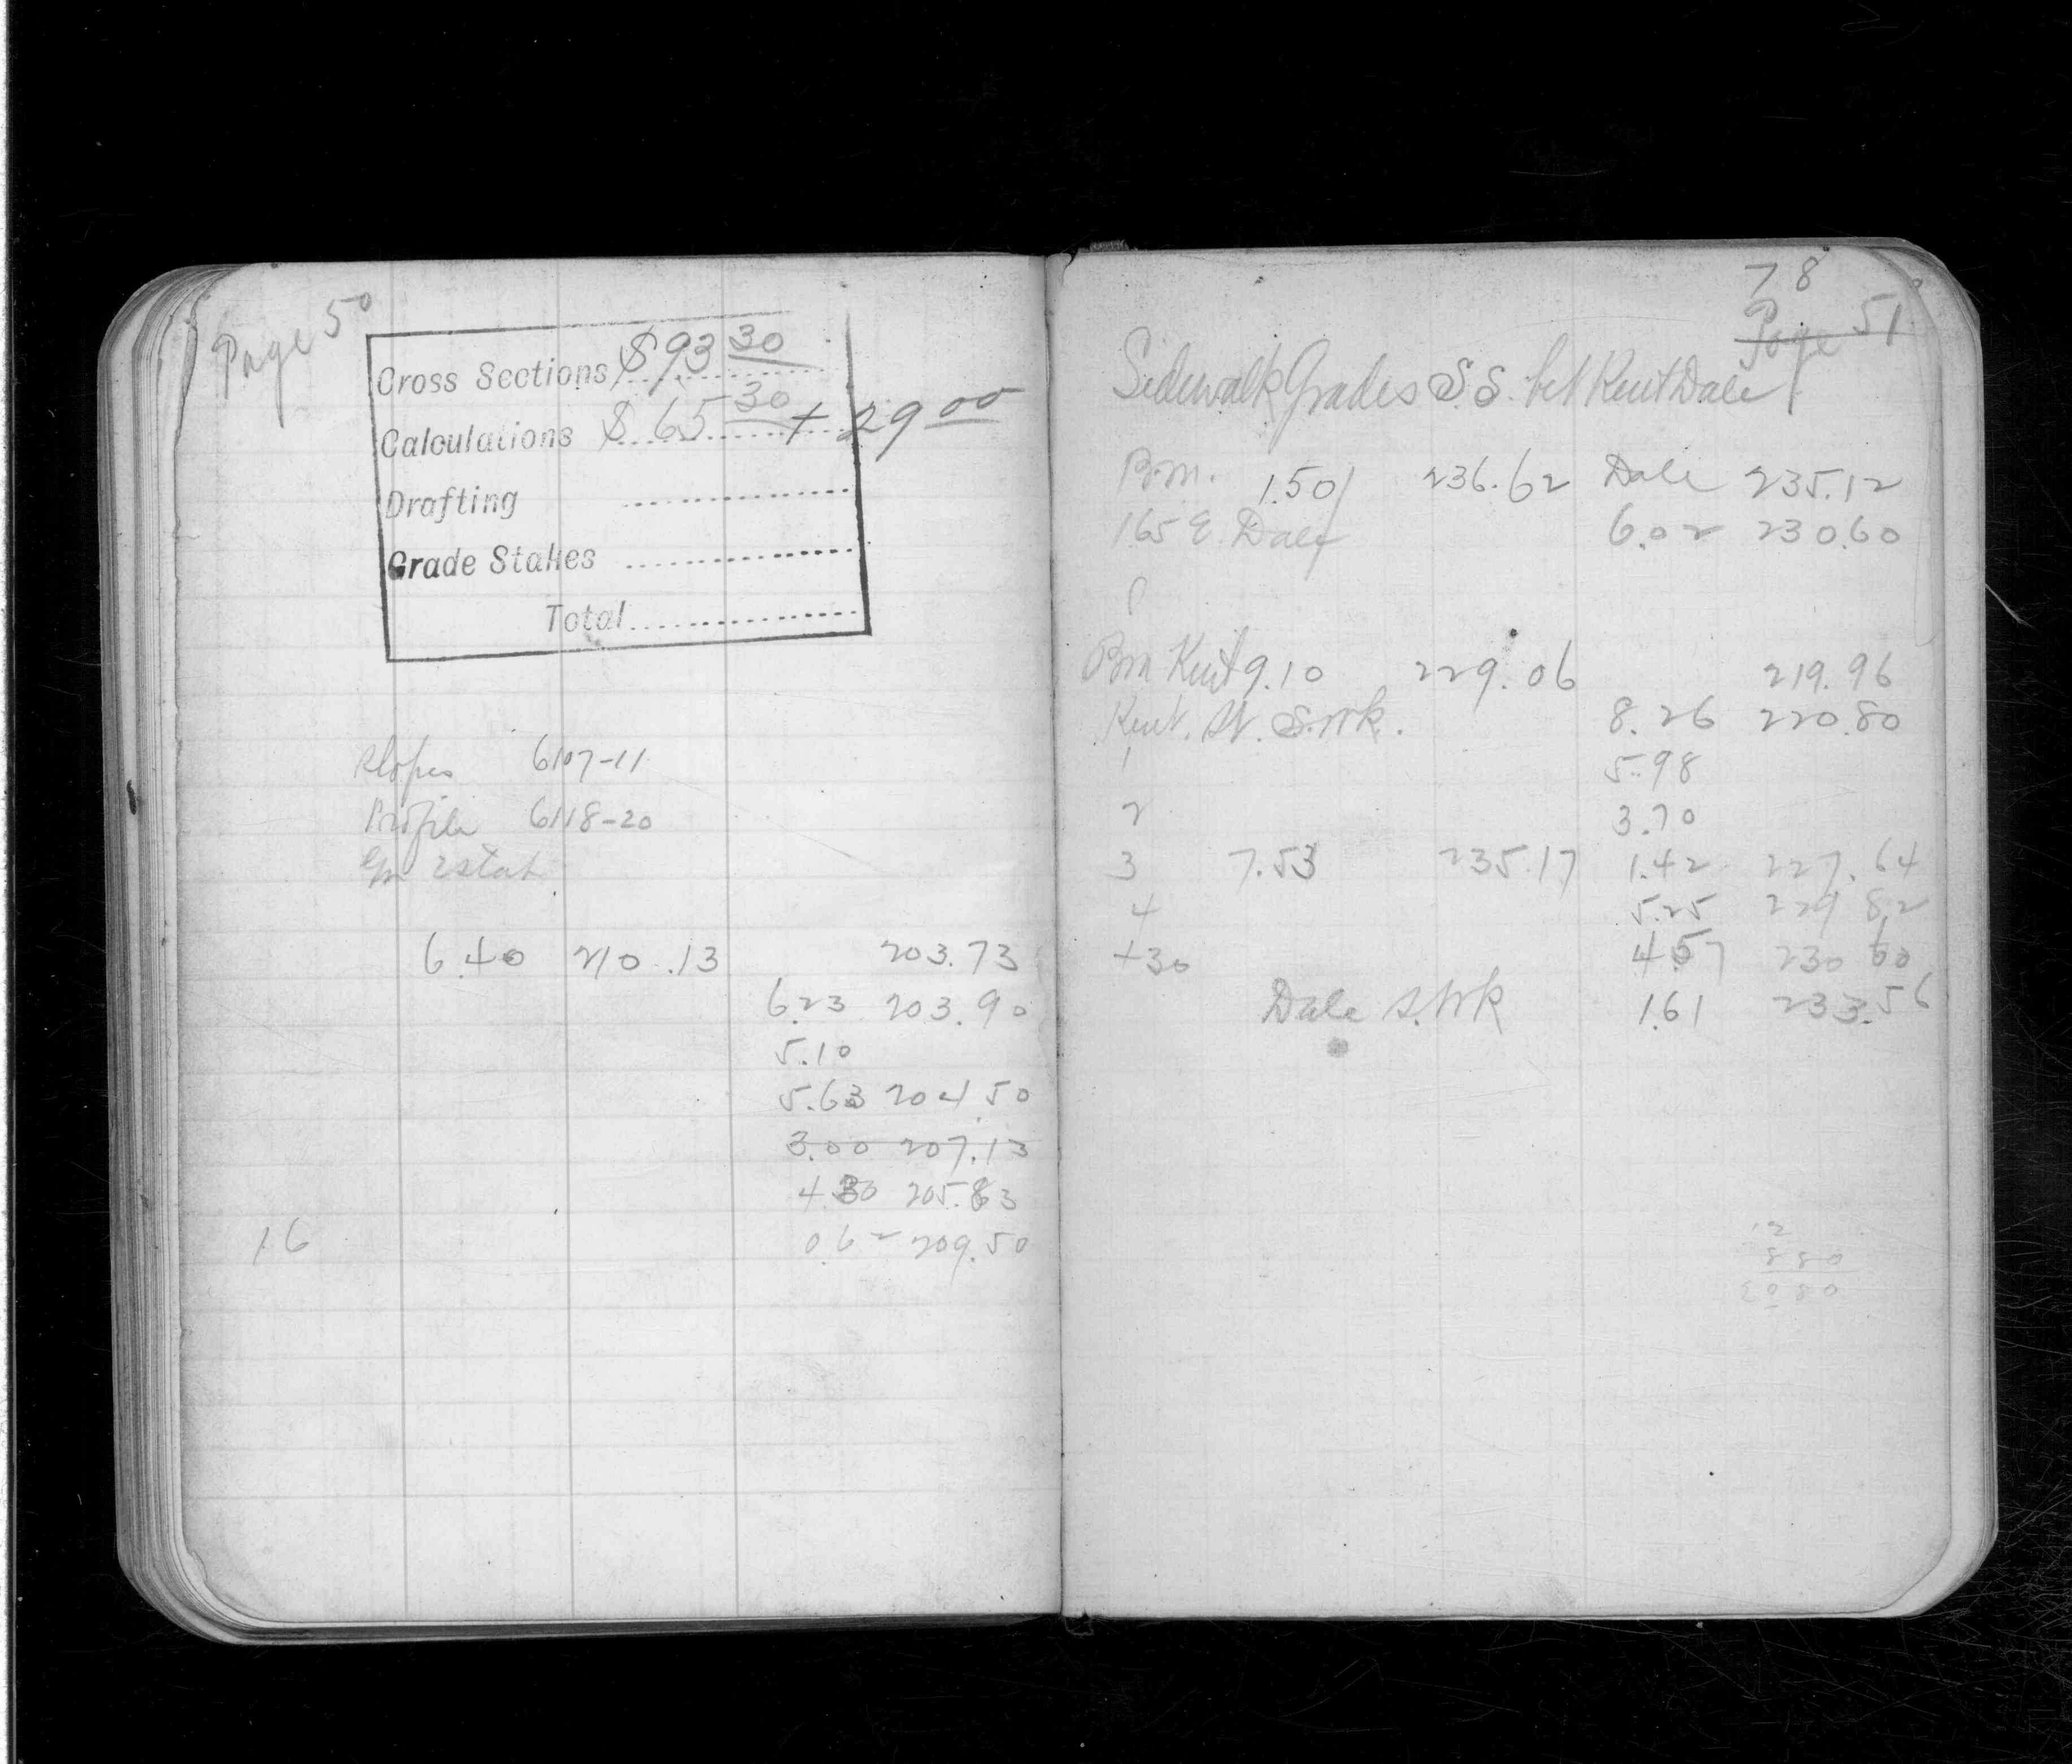 Page 50
Cross Sections $93 30
Calculations $65 30 + 29 00
Drafting
Grade Stakes
Total
Slopes 6107-11
Profile 6118-20
6.40 210.13 203.73
6.23 203.90
5.10
5.63 204.50
3.00 207.13
4.30 205.83
16 0.62 209.50
78
Page 51
Sidewalk Grades S.S. bet Kent Dale
B.M. 1.50 236.62 Dale 235.12
165 E. Dale 6.02 230.60
Bm Kent 9.10 229.06 219.96
Kent. St. S.Wk. 8.26 220.80
1 5.98
2 3.70
3 7.53 235.17 1.42 227.64
4 5.25 229.82
+30 4.57 230 60
Dale S.Wk 1.61 233.56